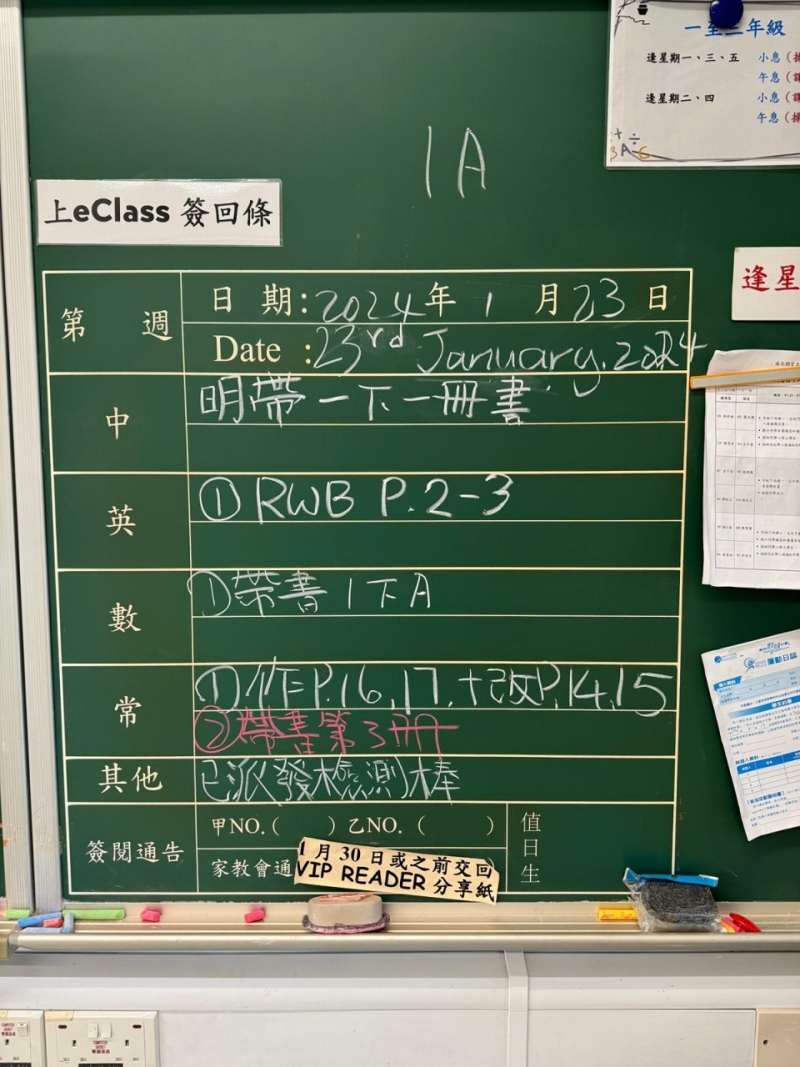 一至二年級
逢星期一、三、五 小息
午息
逢星期二、四 小息
午息
1A
上eClass 簽回條
逢星
第 週
日 期:2024年 1 月 23 日
Date :23rd January, 2024
中
明帶一下一冊書
英
① RWB P.2-3
數
①帶書1下A
常
①作P.16,17,+改P.14,15
②帶書第3冊
其他
已派發檢測棒
簽閱通告
甲NO.( ) 乙NO.( )
家教會通
值日生
1月30日或之前交回
VIP READER 分享紙
運動日誌